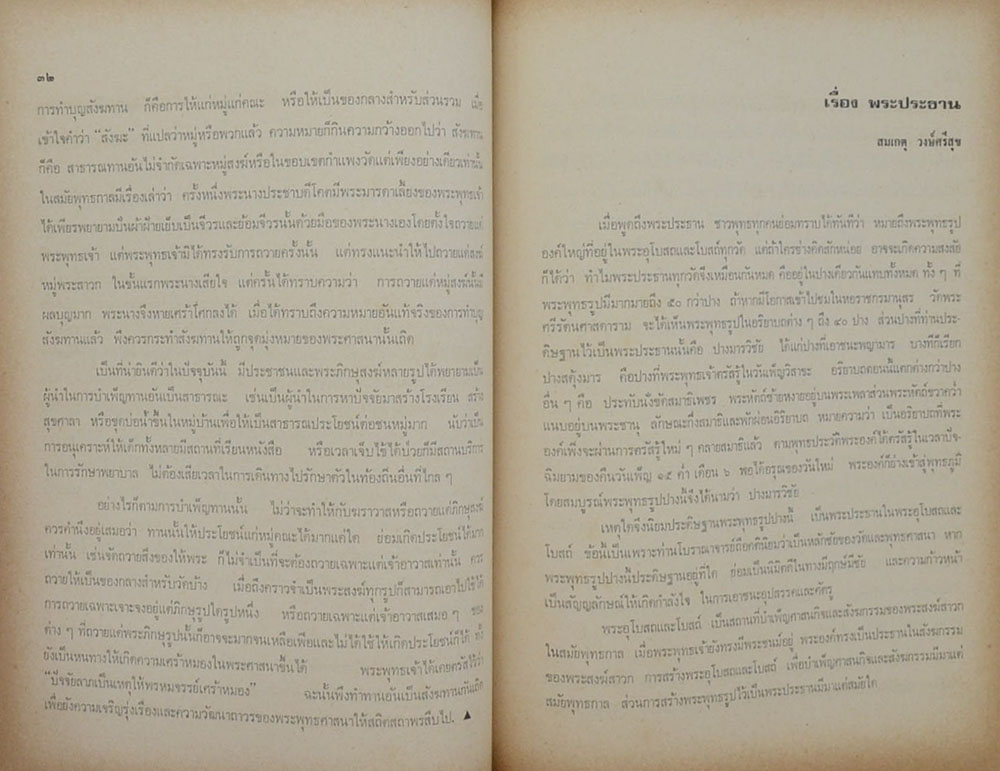 ๓๒
การทำบุญสังฆทาน ก็คือการให้แก่หมู่แก่คณะ หรือให้เป็นของกลางสำหรับส่วนรวม เมื่อ
เข้าใจคำว่า "สังฆะ" ที่แปลว่าหมู่หรือพวกแล้ว ความหมายก็กินความกว้างออกไปว่า สังฆทาน
ก็คือ สาธารณทานอันไม่จำกัดเฉพาะหมู่สงฆ์หรือในขอบเขตกำแพงวัดแต่เพียงอย่างเดียวเท่านั้น
ในสมัยพุทธกาลมีเรื่องเล่าว่า ครั้งหนึ่งพระนางประชาบดีโคตมีพระมารดาเลี้ยงของพระพุทธเจ้า
ได้เพียรพยายามปั่นผ้าฝ้ายเย็บเป็นจีวรและย้อมจีวรนั้นด้วยมือของพระนางเองโดยตั้งใจถวายแด่
พระพุทธเจ้า แต่พระพุทธเจ้ามิได้ทรงรับการถวายครั้งนั้น แต่ทรงแนะนำให้ไปถวายแด่สงฆ์
หมู่พระสาวก ในชั้นแรกพระนางเสียใจ แต่ครั้นได้ทราบความว่า การถวายแด่หมู่สงฆ์นั้นมี
ผลบุญมาก พระนางจึงหายเศร้าโศกลงได้ เมื่อได้ทราบถึงความหมายอันแท้จริงของการทำบุญ
สังฆทานแล้ว พึงควรกระทำสังฆทานให้ถูกจุดมุ่งหมายของพระศาสนานั้นเถิด
เป็นที่น่ายินดีว่าในปัจจุบันนี้ มีประชาชนและพระภิกษุสงฆ์หลายรูปได้พยายามเป็น
ผู้นำในการบำเพ็ญทานอันเป็นสาธารณะ เช่นเป็นผู้นำในการหาปัจจัยมาสร้างโรงเรียน สร้าง
สุขศาลา หรือขุดบ่อน้ำขึ้นในหมู่บ้านเพื่อให้เป็นสาธารณประโยชน์ต่อชนหมู่มาก นับว่าเป็น
การอนุเคราะห์ให้เด็กทั้งหลายมีสถานที่เรียนหนังสือ หรือเวลาเจ็บไข้ได้ป่วยก็มีสถานบริการ
ในการรักษาพยาบาล ไม่ต้องเสียเวลาในการเดินทางไปรักษาตัวในท้องถิ่นอื่นที่ไกล ๆ
อย่างไรก็ตามการบำเพ็ญทานนั้น ไม่ว่าจะทำให้กับฆราวาสหรือถวายแด่ภิกษุสงฆ์
ควรคำนึงอยู่เสมอว่า ทานนั้นให้ประโยชน์แก่หมู่คณะได้มากแค่ใด ย่อมเกิดประโยชน์ได้มาก
เท่านั้น เช่นจัดถวายสิ่งของให้พระ ก็ไม่จำเป็นที่จะต้องถวายเฉพาะแด่เจ้าอาวาสเท่านั้น ควร
ถวายให้เป็นของกลางสำหรับวัดบ้าง เมื่อถึงคราวจำเป็นพระสงฆ์ทุกรูปก็สามารถเอาไปใช้ได้
การถวายเฉพาะเจาะจงอยู่แด่ภิกษุรูปใดรูปหนึ่ง หรือถวายเฉพาะแด่เจ้าอาวาสเสมอ ๆ ของ
ต่าง ๆ ที่ถวายแด่พระภิกษุรูปนั้นก็อาจจะมากจนเหลือเฟือและไม่ได้ใช้ให้เกิดประโยชน์ก็ได้ ทั้ง
ยังเป็นหนทางให้เกิดความเศร้าหมองในพระศาสนาขึ้นได้ พระพุทธเจ้าได้เคยตรัสไว้ว่า
"ปัจจัยลาภเป็นเหตุให้พรหมจรรย์เศร้าหมอง" ฉะนั้นพึงทำทานอันเป็นสังฆทานกันเถิด
เพื่อยังความเจริญรุ่งเรืองและความวัฒนาถาวรของพระพุทธศาสนาให้สถิตสถาพรสืบไป. ▲
เรื่อง พระประธาน
สมเกตุ วงษ์ศรีสุข
เมื่อพูดถึงพระประธาน ชาวพุทธทุกคนย่อมทราบได้ทันทีว่า หมายถึงพระพุทธรูป
องค์ใหญ่ที่อยู่ในพระอุโบสถและโบสถ์ทุกวัด แต่ถ้าใครช่างคิดสักหน่อย อาจจะเกิดความสงสัย
ก็ได้ว่า ทำไมพระประธานทุกวัดจึงเหมือนกันหมด คืออยู่ในปางเดียวกันแทบทั้งหมด ทั้ง ๆ ที่
พระพุทธรูปมีมากมายถึง ๕๐ กว่าปาง ถ้าหากมีโอกาสเข้าไปชมในหอราชกรมานุสร วัดพระ
ศรีรัตนศาสดาราม จะได้เห็นพระพุทธรูปในอริยาบถต่าง ๆ ถึง ๔๐ ปาง ส่วนปางที่ท่านประ-
ดิษฐานไว้เป็นพระประธานนั้นคือ ปางมารวิชัย ได้แก่ปางที่เอาชนะพญามาร บางทีก็เรียก
ปางสดุ้งมาร คือปางที่พระพุทธเจ้าตรัสรู้ในวันเพ็ญวิสาขะ อริยาบถตอนนี้แตกต่างกว่าปาง
อื่น ๆ คือ ประทับนั่งขัดสมาธิเพชร พระหัตถ์ซ้ายหงายอยู่บนพระเพลาส่วนพระหัตถ์ขวาคว่ำ
แนบอยู่บนพระชานุ ลักษณะกึ่งสมาธิและพักผ่อนอิริยาบถ หมายความว่า เป็นอริยาบถที่พระ
องค์เพิ่งจะผ่านการตรัสรู้ใหม่ ๆ คลายสมาธิแล้ว ตามพุทธประวัติพระองค์ได้ตรัสรู้ในเวลาปัจ-
ฉิมยามของคืนวันเพ็ญ ๑๕ ค่ำ เดือน ๖ พอได้อรุณของวันใหม่ พระองค์ก็ย่างเข้าสู่พุทธภูมิ
โดยสมบูรณ์พระพุทธรูปปางนี้จึงได้นามว่า ปางมารวิชัย
เหตุใดจึงนิยมประดิษฐานพระพุทธรูปปางนี้ เป็นพระประธานในพระอุโบสถและ
โบสถ์ ข้อนี้เป็นเพราะท่านโบราณาจารย์ถือคตินิยมว่าเป็นหลักชัยของวัดและพุทธศาสนา หาก
พระพุทธรูปปางนี้ประดิษฐานอยู่ที่ใด ย่อมเป็นนิมิตดีในทางมีฤกษ์มีชัย และความก้าวหน้า
เป็นสัญญลักษณ์ให้เกิดกำลังใจ ในการเอาชนะอุปสรรคและศัตรู
พระอุโบสถและโบสถ์ เป็นสถานที่บำเพ็ญศาสนกิจและสังฆกรรมของพระสงฆ์สาวก
ในสมัยพุทธกาล เมื่อพระพุทธเจ้ายังทรงมีพระชนม์อยู่ พระองค์ทรงเป็นประธานในสังฆกรรม
ของพระสงฆ์สาวก การสร้างพระอุโบสถและโบสถ์ เพื่อบำเพ็ญศาสนกิจและสังฆกรรมมีมาแต่
สมัยพุทธกาล ส่วนการสร้างพระพุทธรูปไว้เป็นพระประธานมีมาแต่สมัยใด